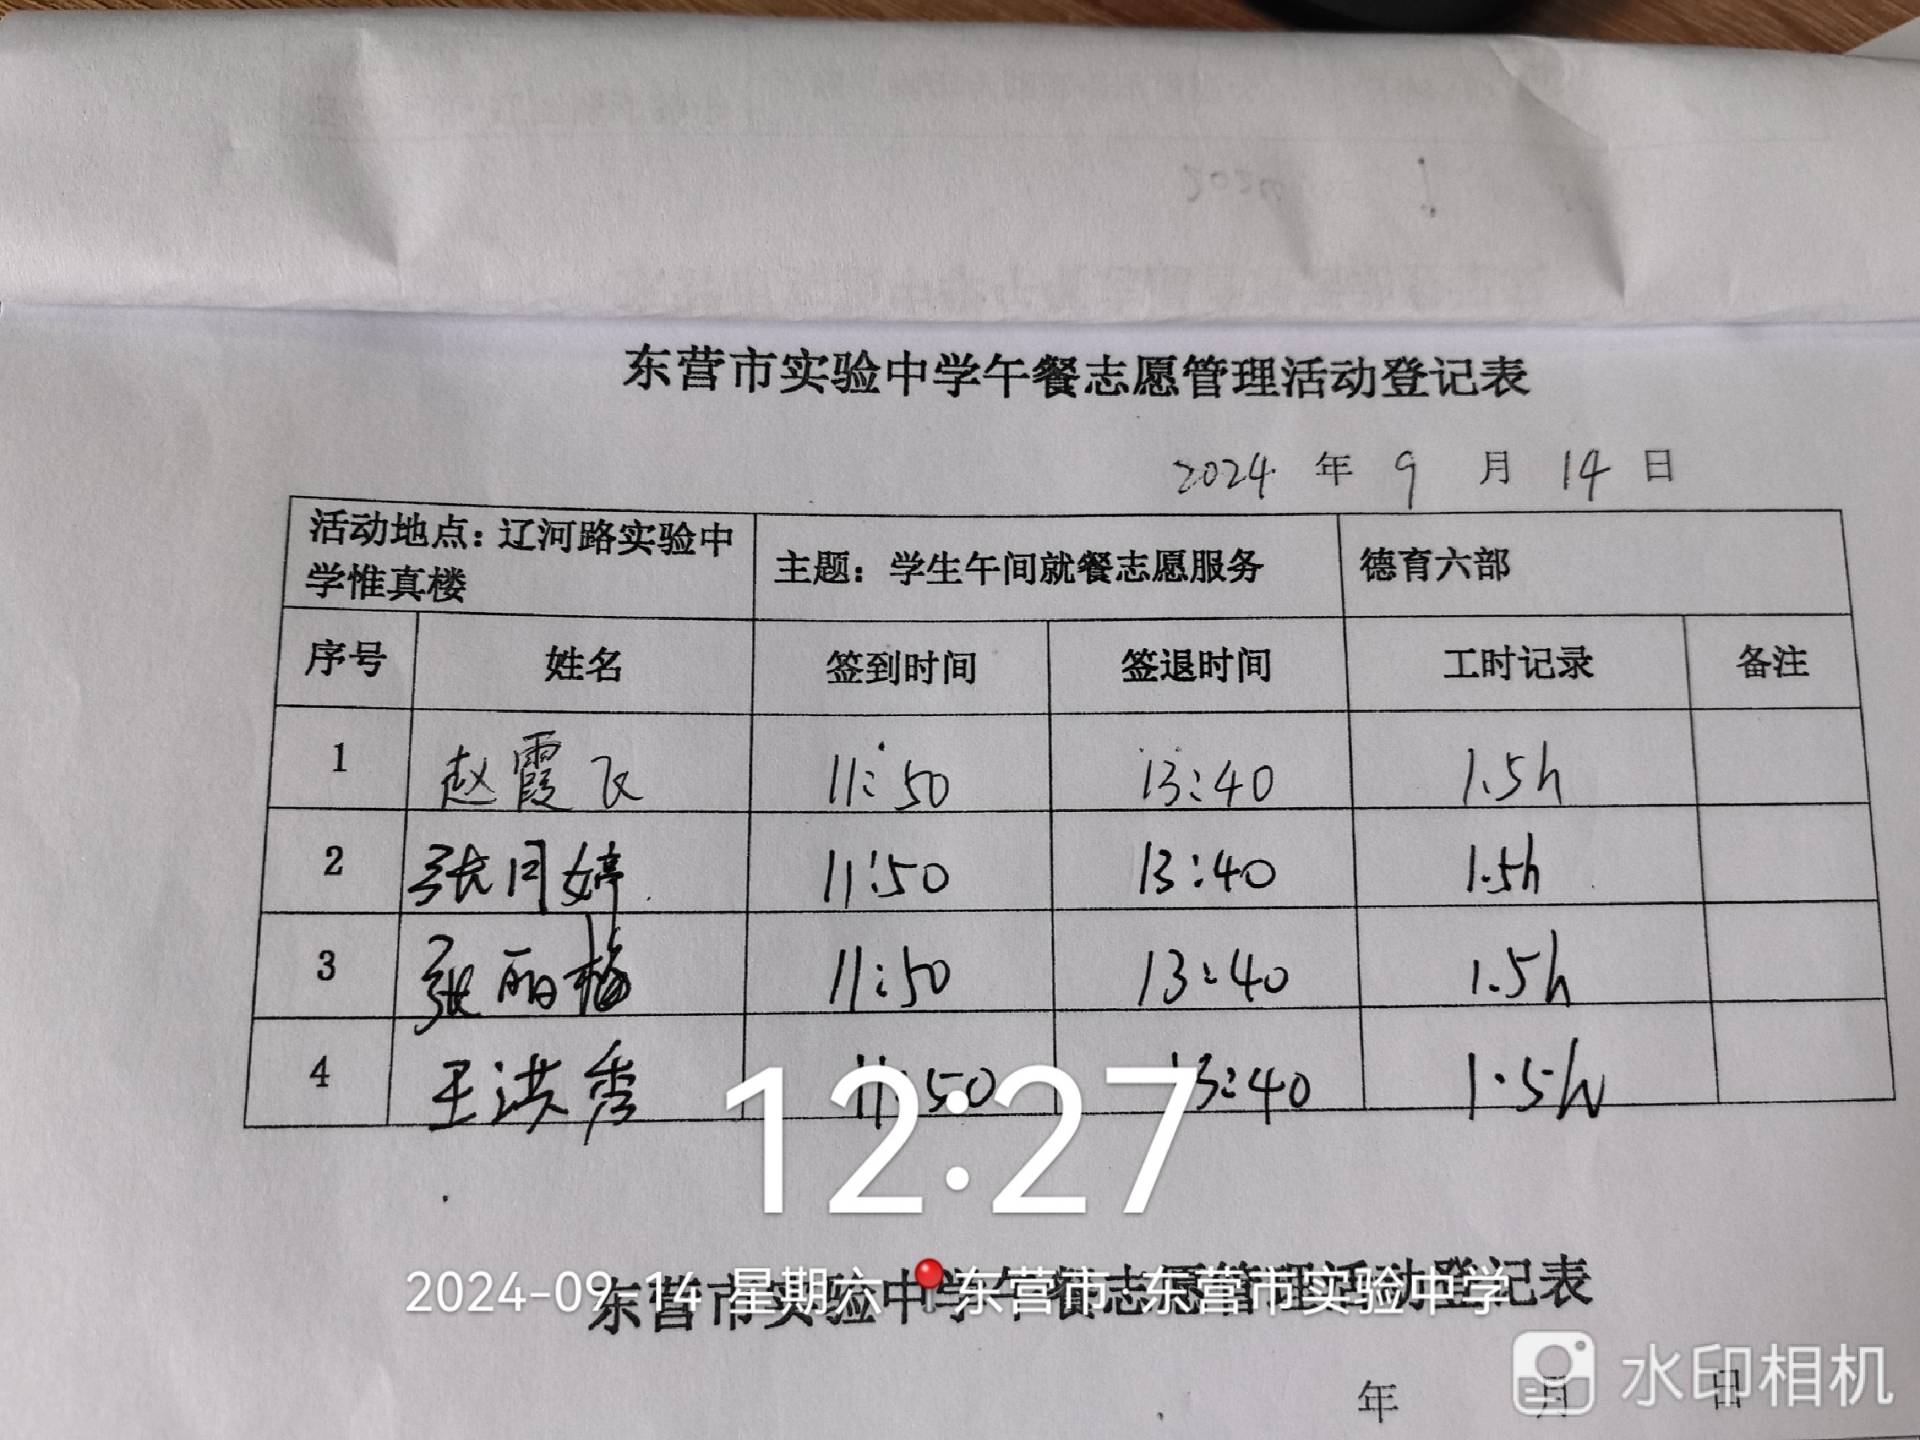 东营市实验中学午餐志愿管理活动登记表
2024 年 9 月 14 日
活动地点：辽河路实验中学惟真楼 主题：学生午间就餐志愿服务 德育六部
序号 姓名 签到时间 签退时间 工时记录 备注
1 赵霞飞 11:50 13:40 1.5h
2 张月婷 11:50 13:40 1.5h
3 张丽梅 11:50 13:40 1.5h
4 王洪秀 11:50 13:40 1.5h
12:27
东营市实验中学午餐志愿管理活动登记表
2024-09-14 星期六 东营市·东营市实验中学
年 月 日
水印相机